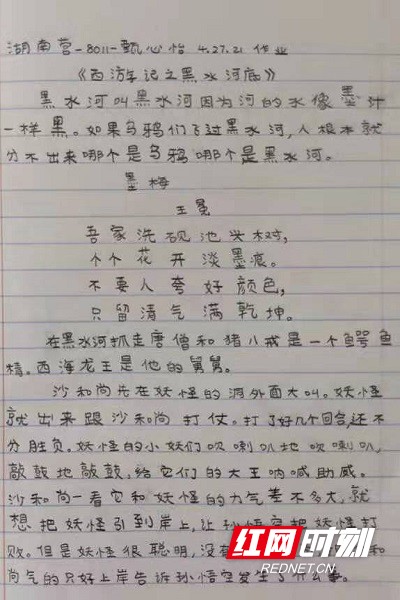 湖南营-8011-甄心怡 4.27.21 作业
《西游记之黑水河底》
黑水河叫黑水河因为河的水像墨汁
一样黑。如果乌鸦们飞过黑水河,人根本就
分不出来哪个是乌鸦哪个是黑水河。
墨梅
王冕
吾家洗砚池头树,
个个花开淡墨痕。
不要人夸好颜色,
只留清气满乾坤。
在黑水河抓走唐僧和猪八戒是一个鳄鱼
精。西海龙王是他的舅舅。
沙和尚先在妖怪的洞外面大叫。妖怪
就出来跟沙和尚打仗。打了好几个回合,还不
分胜负。妖怪的小妖们吹喇叭地吹喇叭,
敲鼓地敲鼓,给它们的大王呐喊助威。
沙和尚一看它和妖怪的力气差不多大,就
想把妖怪引到岸上,让孙悟空把妖怪打
败。但是妖怪很聪明,没有 和
尚气的只好上岸告诉孙悟空发生了什么事。
红网时刻
REDNET.CN